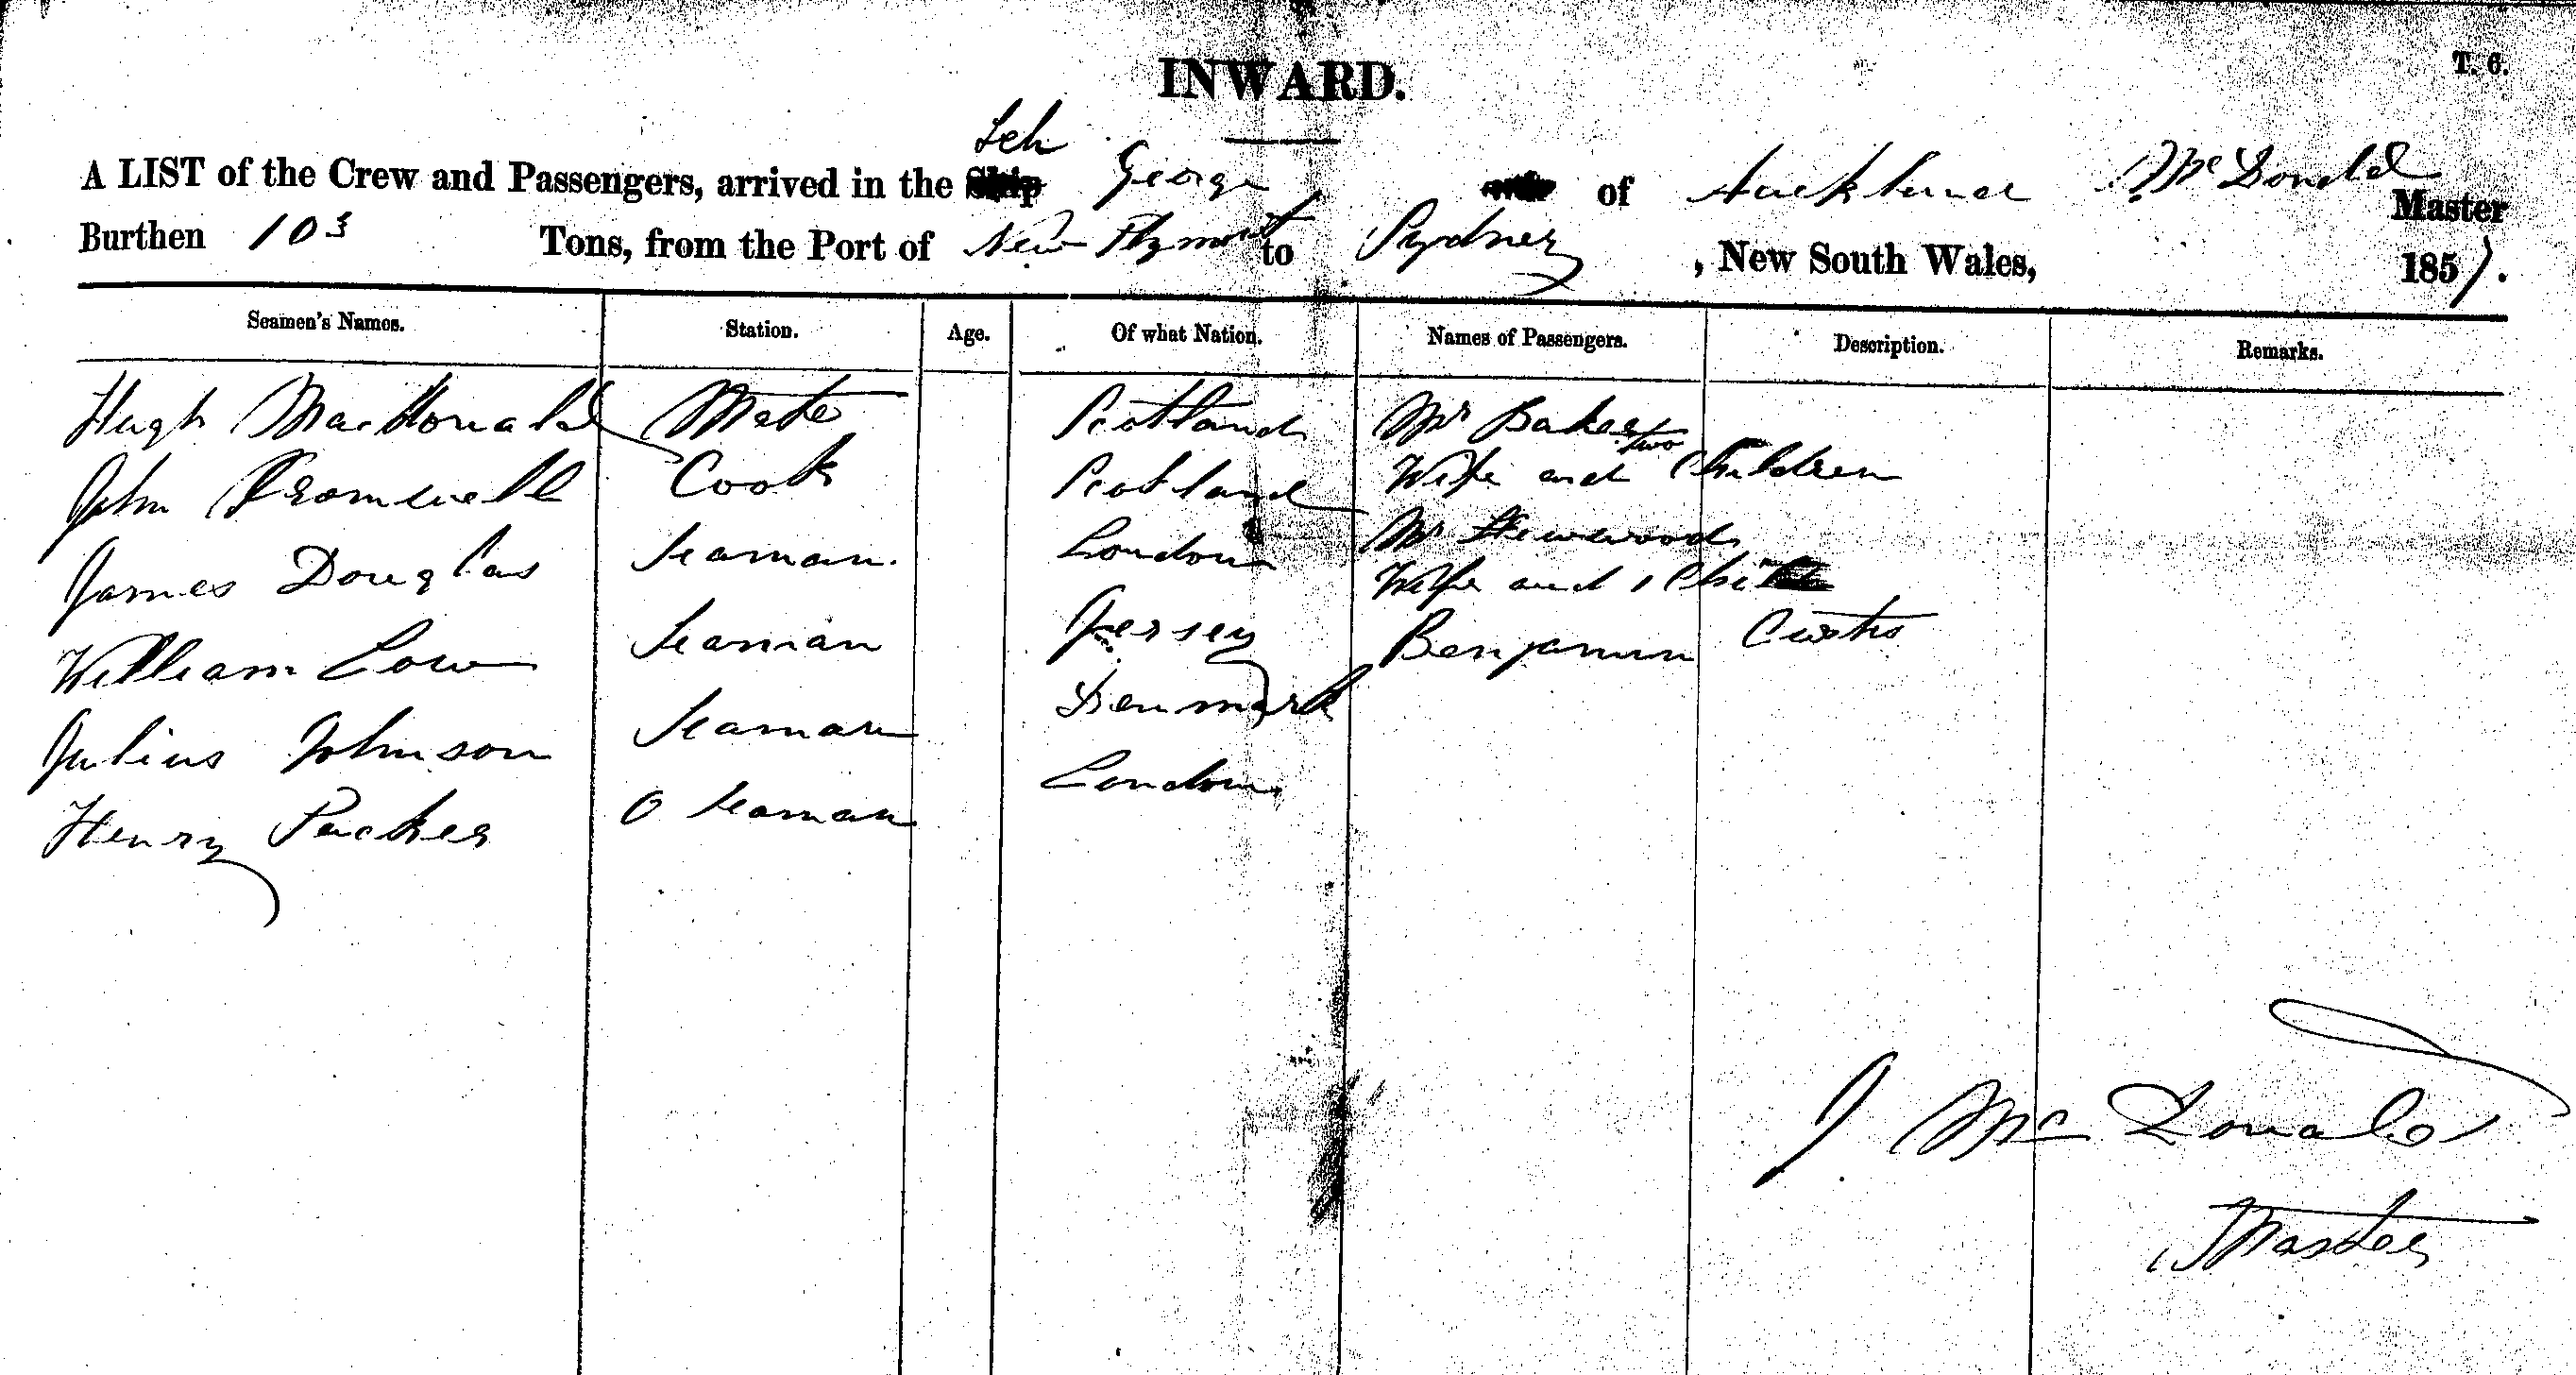 T. 6.
INWARD.
Sch
A LIST of the Crew and Passengers, arrived in the Ship George of Auckland J McDonald Master
Burthen 103 Tons, from the Port of New Plymout to Sydney, New South Wales, 1857.
Seamen's Names. Station. Age. Of what Nation. Names of Passengers. Description. Remarks.
Hugh MacDonald Mate Scotland Mr Baker
John Cromwell Cook Scotland Wife and two Children
James Douglas Seaman. London Mr Henwood
Wife and 1 Child
William Low Seaman Jersey Benjamin Curtis
Julius Johnson Seaman Denmark
Henry Packer O Seaman London
J McDonald
Master